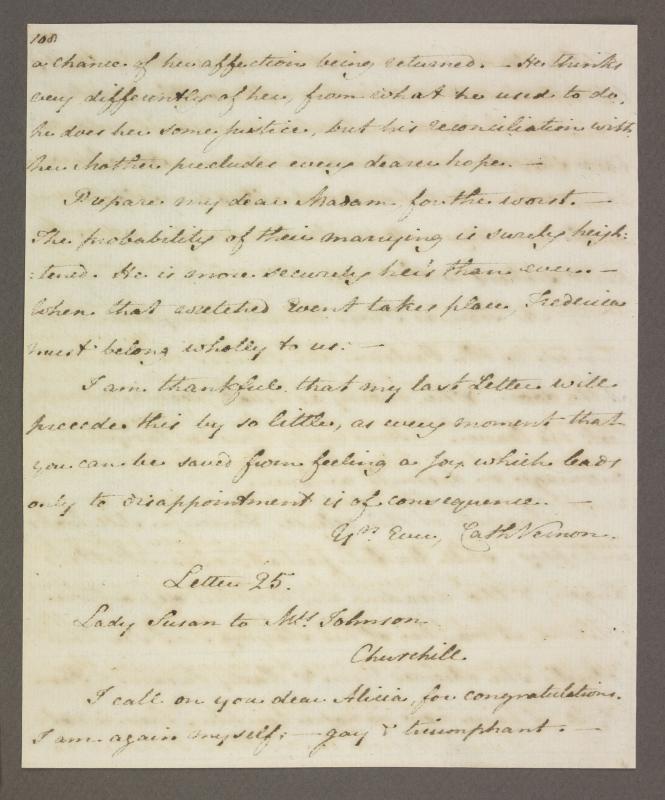 108
a chance of her affection being returned. — He thinks
very differently of her, from what he used to do,
he does her some justice, but his reconciliation with
her Mother precludes every dearer hope. —
Prepare my dear Madam, for the worst. —
The probability of their marrying is surely heigh:
:tened. He is more securely her's than ever. —
When that wretched Event takes place, Frederica
must belong wholly to us. —
I am thankful that my last Letter will
precede this by so little, as every moment that
you can be saved from feeling a Joy which leads
only to disappointment is of consequence. —
Yrs Ever, Cath Vernon.
Letter 25.
Lady Susan to Mrs Johnson
Churchill.
I call on you dear Alicia, for congratulations.
I am again myself; — gay & triumphant. —